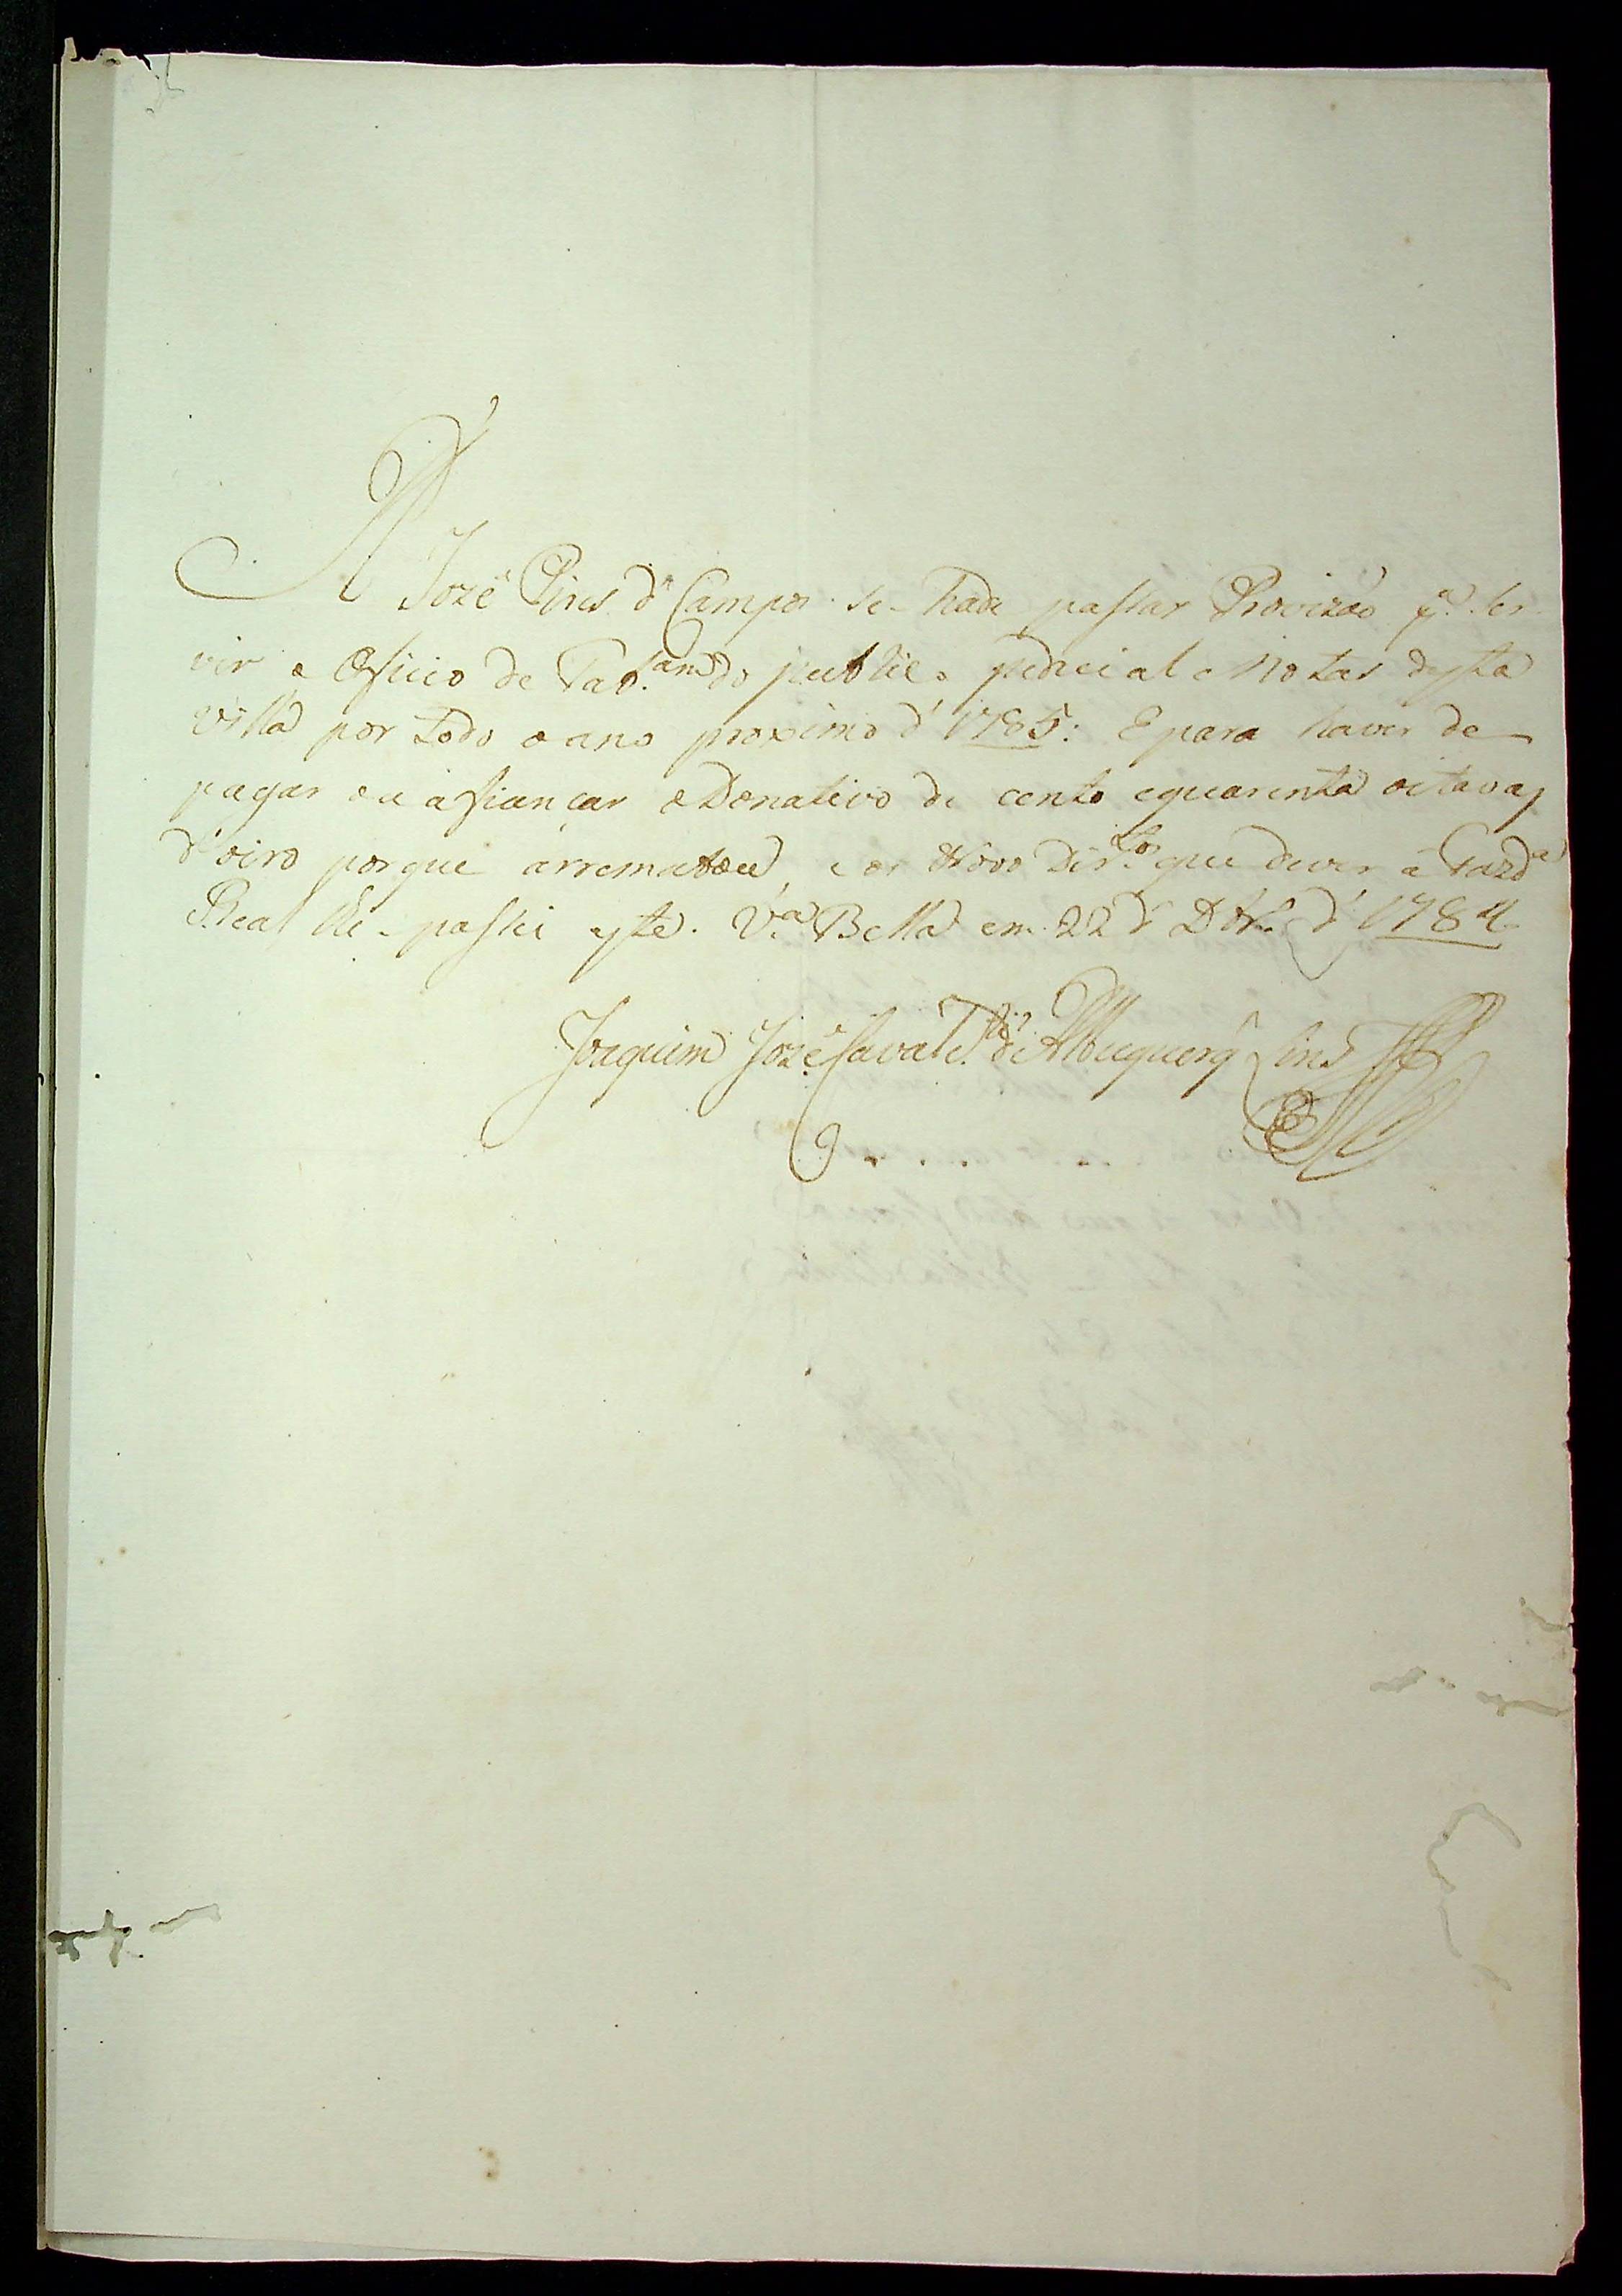 A Jozé Pires d' Campos se-hade passar Provizaõ p.ª ser
vir o Oficio de Tab.am do publico judicial e Notas desta
villa por todo o ano proximo d' 1785: E para haver de
pagar ou afiançar o Donativo de cento e quarenta oitavas
d' oiro porque arrematou, e os Novos Dir.tos que dever á Fazd.ª
Real lhe-passei este. V.ª Bella em 22 d' Dbr.o d' 1784
Joaquim Jozé Caval.te d' Albuquerq' Lins